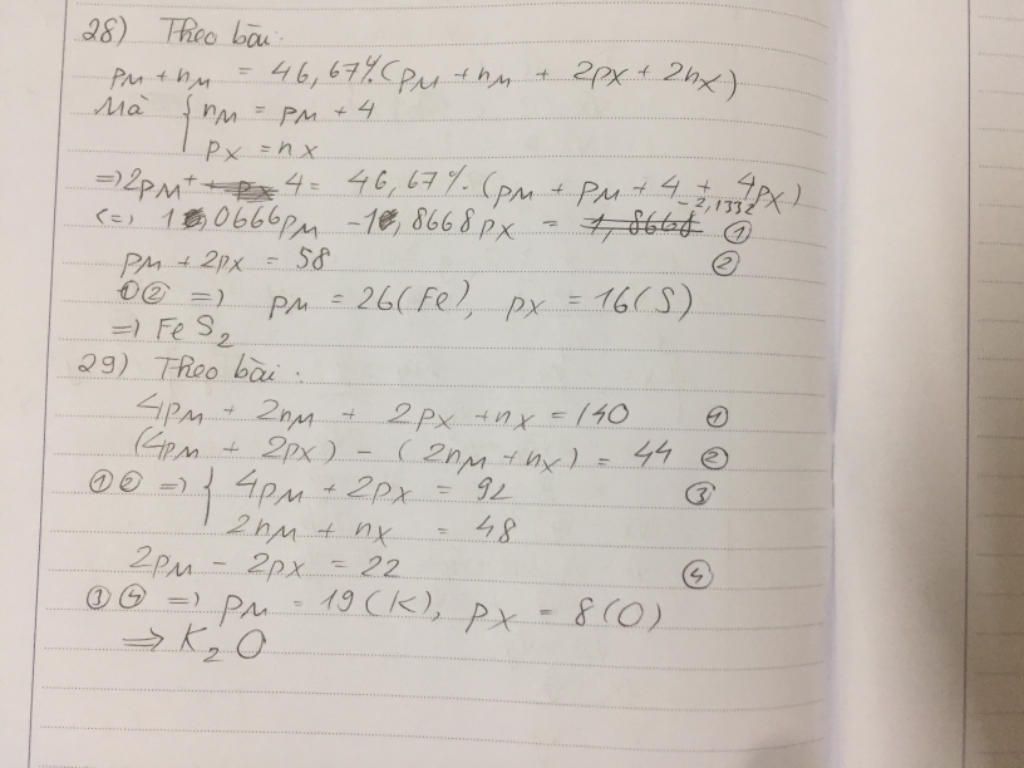 28) Theo bài:
pM + nM = 46,67% (pM + nM + 2pX + 2nX)
Mà { nM = pM + 4
pX = nX
=> 2pM + 4 = 46,67%. (pM + pM + 4 + 4pX)
<=> 1,0666pM - 1,8668pX = -2,1332 ①
pM + 2pX = 58 ②
①② => pM = 26(Fe), pX = 16(S)
=> FeS₂
29) Theo bài:
4pM + 2nM + 2pX + nX = 140 ①
(4pM + 2pX) - (2nM + nX) = 44 ②
①② => { 4pM + 2pX = 92 ③
2nM + nX = 48
2pM - 2pX = 22 ④
③④ => pM = 19(K), pX = 8(O)
=> K₂O